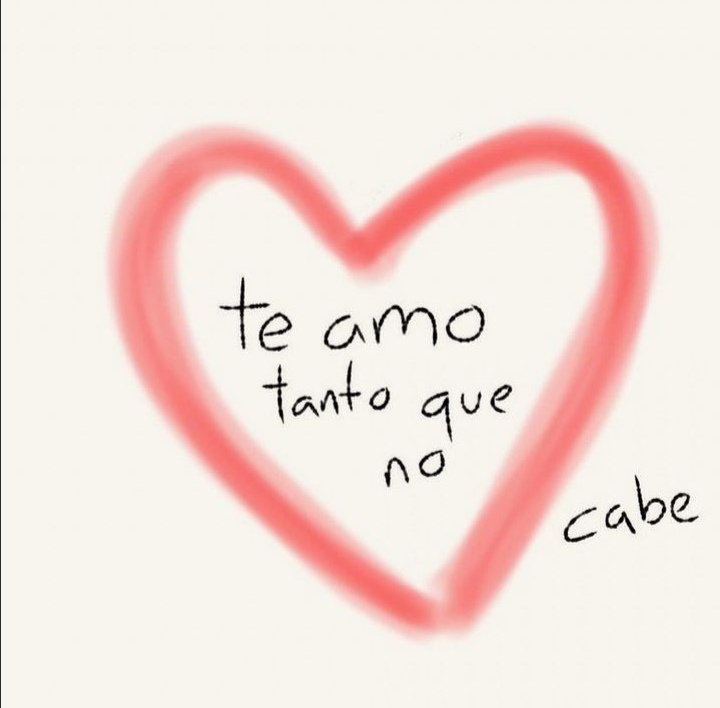 te amo
tanto que
no
cabe